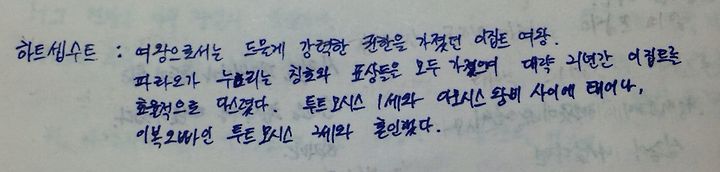 하트셉수트 : 여왕으로서는 드물게 강력한 권한을 가졌던 이집트 여왕.
파라오가 누리는 칭호와 표상들을 모두 가졌으며 대략 21년간 이집트를
효율적으로 다스렸다. 투트모시스 1세와 아모시스 왕비 사이에 태어나,
이복오빠인 투트모시스 2세와 혼인했다.